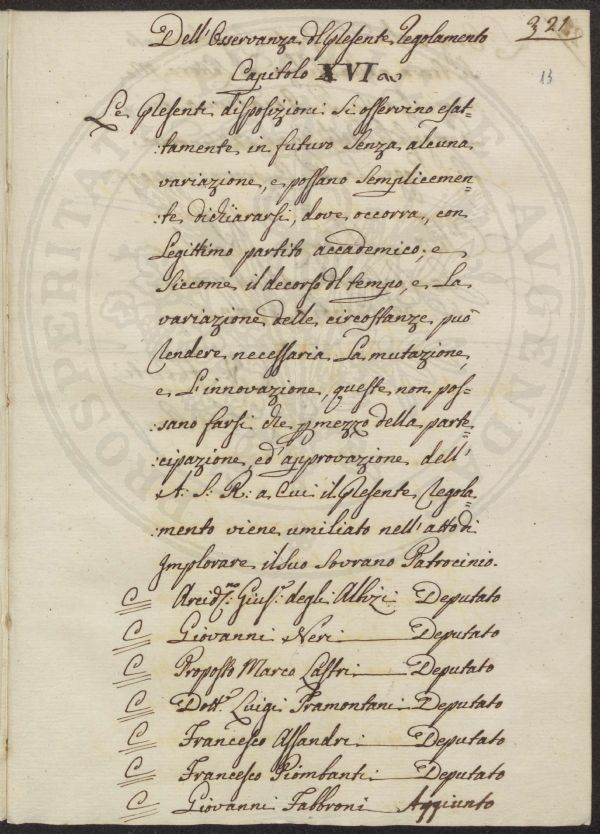 321
13
Dell'Osservanza dl Presente Regolamento
Capitolo XVI
Le Presenti disposizioni si osservino esat=
:tamente in futuro senza alcuna
variazione, e possano semplicemen=
:te dichiararsi, dove occorra, con
legittimo partito accademico; e
siccome il decorso dl tempo, e la
variazione delle circostanze può
rendere necessaria la mutazione,
e l'innovazione, queste non pos=
:sano farsi che p mezzo della parte=
:cipazione, ed approvazione dell'
A: S: R: a cui il Presente Regola=
:mento viene umiliato nell'atto di
Implorare il suo Sovrano Patrocinio.
C Arcid.no Gius.e degli Albizi Deputato
C Giovanni Neri Deputato
C Proposto Marco Lastri Deputato
C Dott.e Luigi Tramontani Deputato
C Francesco Assandri Deputato
C Francesco Piombanti Deputato
C Giovanni Fabbroni Aggiunto
PROSPERITATI AUGENDAE